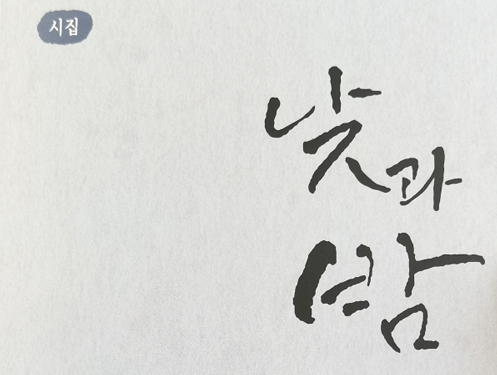 시집
낮과
밤